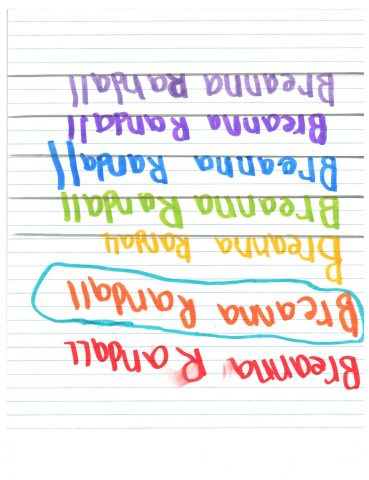 Breanna Randall
Breanna Randall
Breanna Randall
Breanna Randall
Breanna Randall
Breanna Randall
Breanna Randall